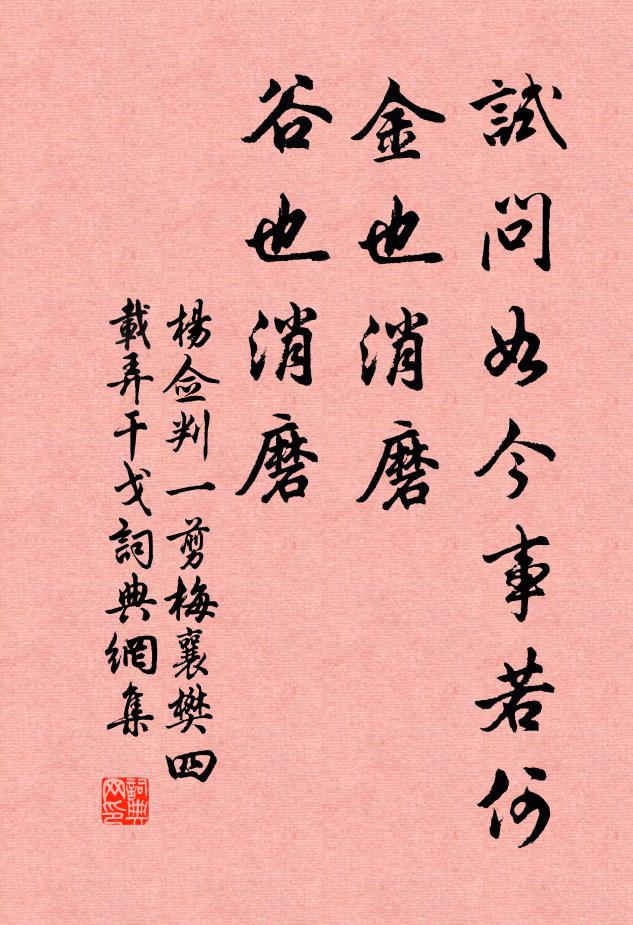 試問如今事若何
金也消磨
谷也消磨
楊僉判一剪梅襄樊四
載弄干戈詞典網集
詞典
网印